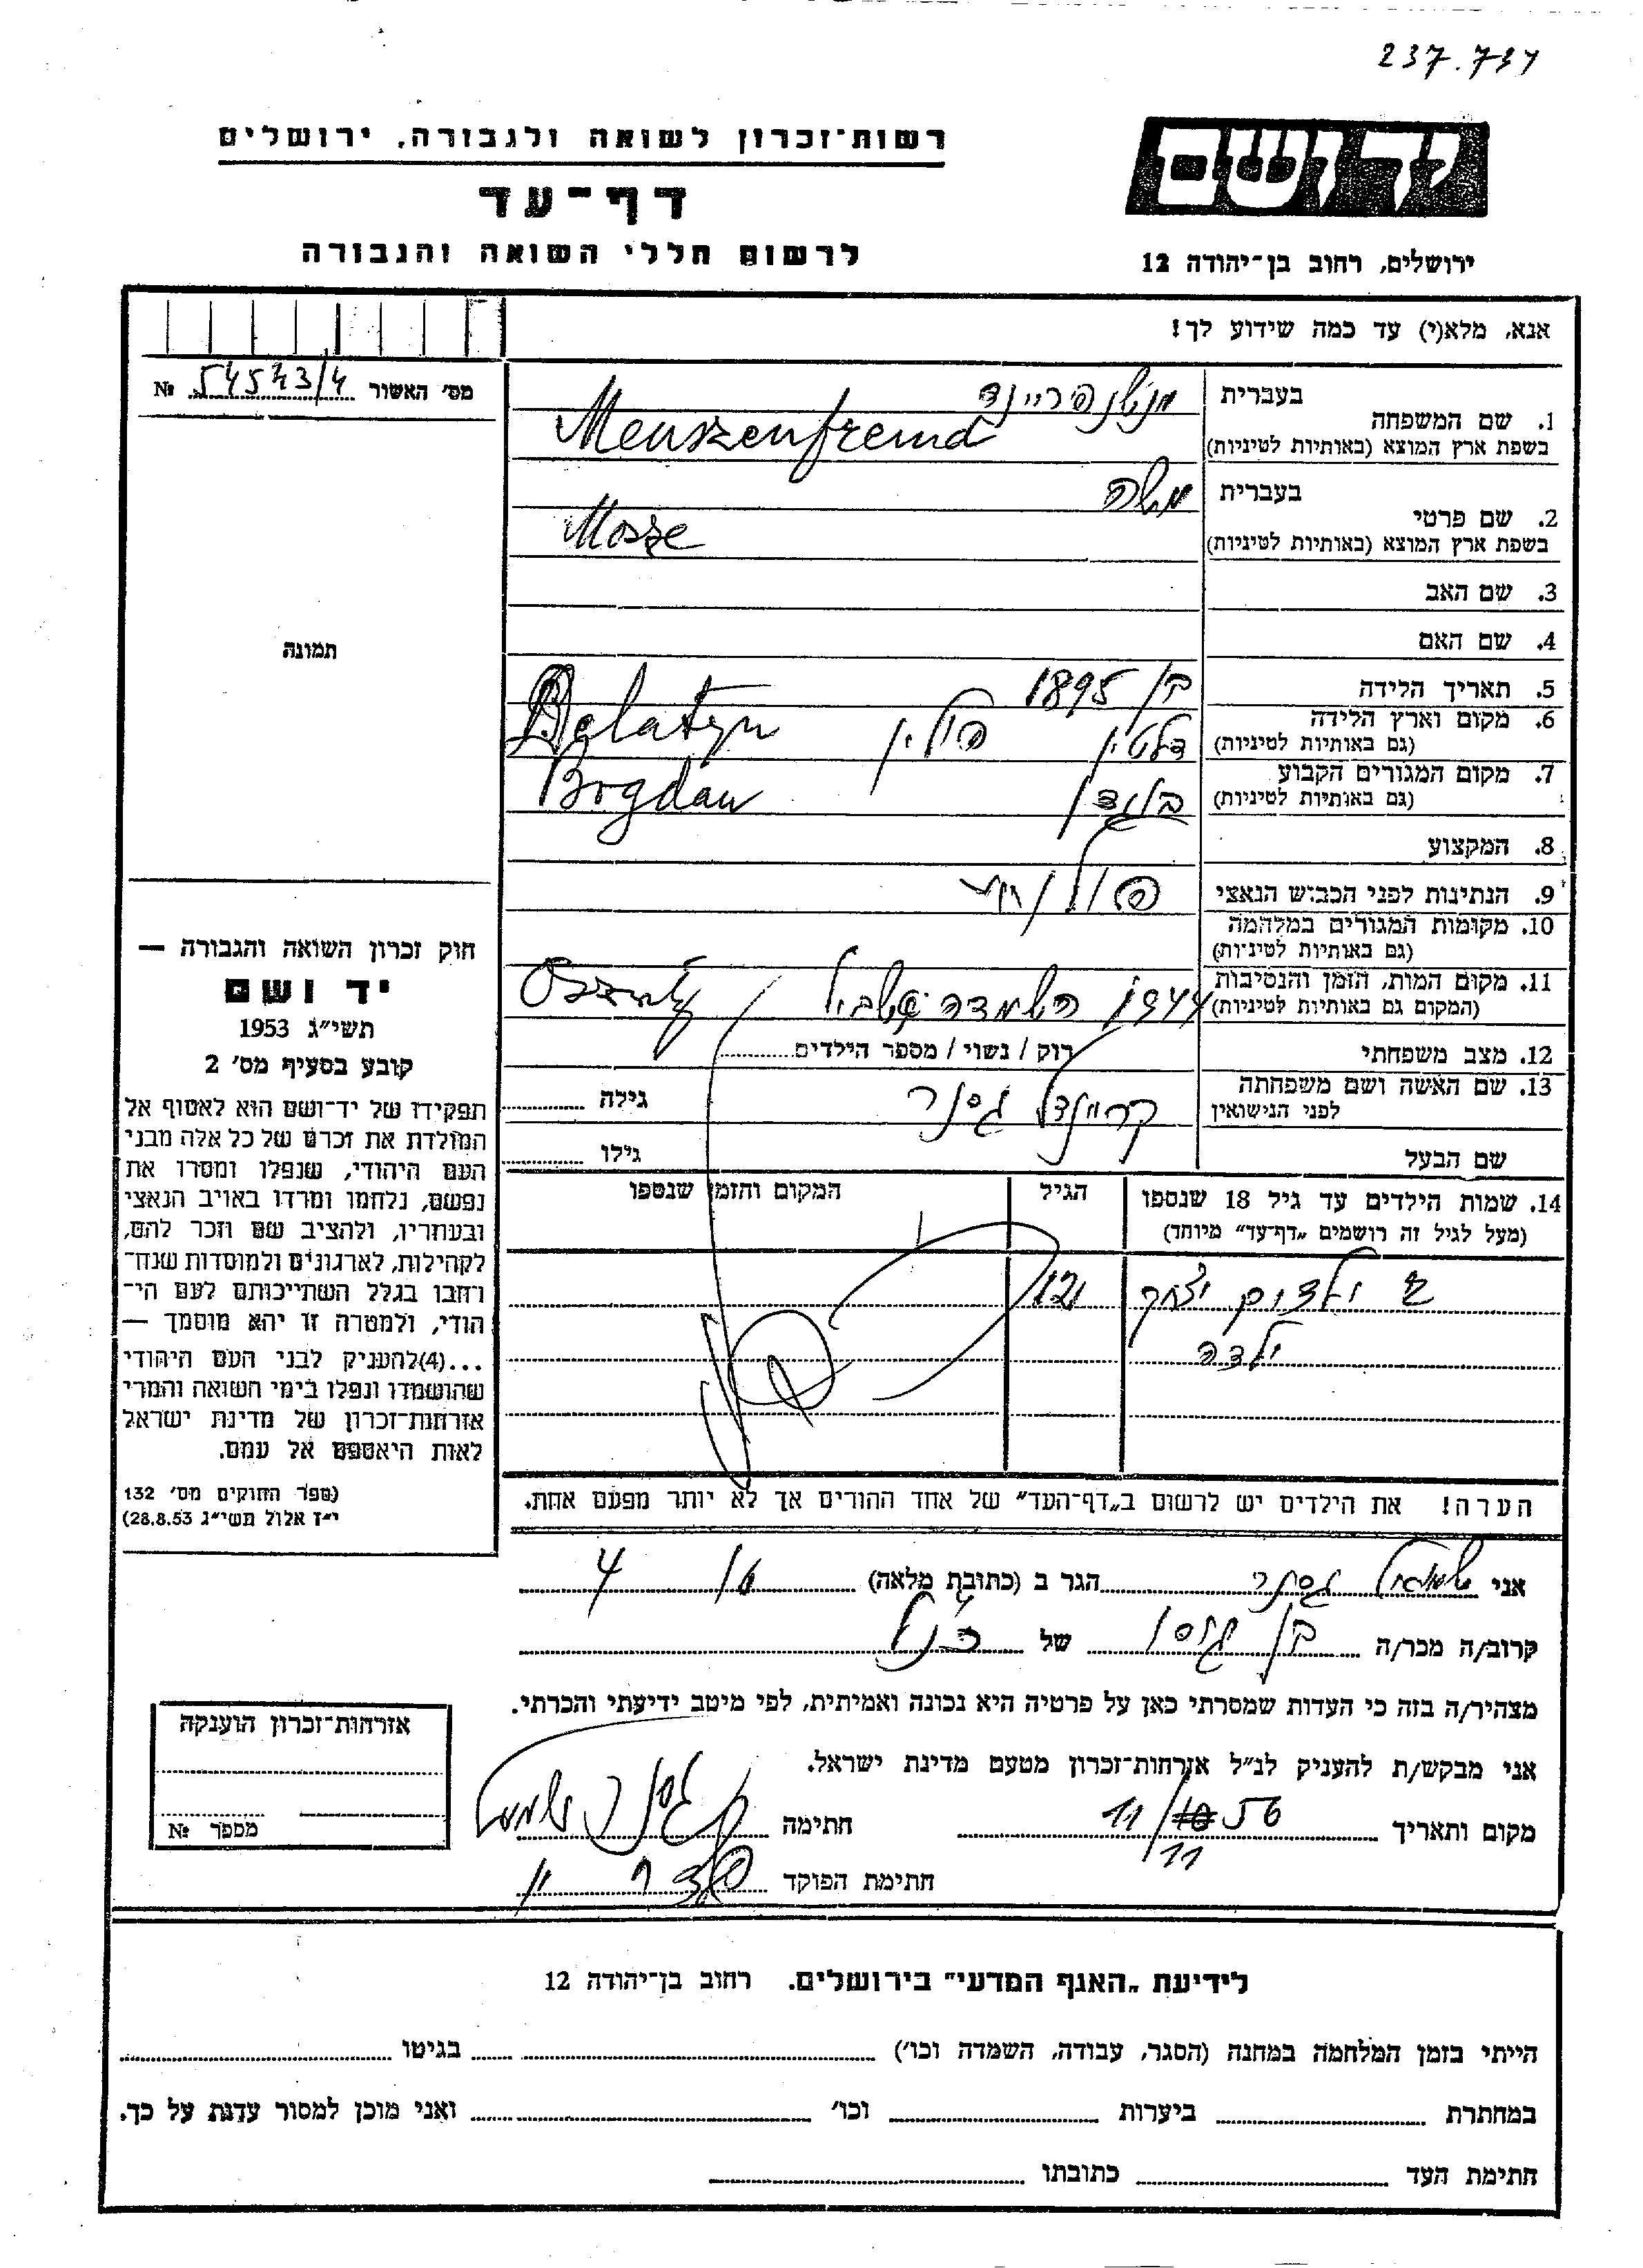 237.734
ידושם
רשות־זכרון לשואה ולגבורה, ירושלים
דף־עד
לרשום חללי השואה והגבורה
ירושלים, רחוב בן־יהודה 12
אנא, מלא(י) עד כמה שידוע לך!
מס׳ האשור 54543/4 №
תמונה
1. שם המשפחה בעברית מנשנפריינד
בשפת ארץ המוצא (באותיות לטיניות) Menszenfreind
2. שם פרטי בעברית משה
בשפת ארץ המוצא (באותיות לטיניות) Mosze
3. שם האב
4. שם האם
5. תאריך הלידה 1895
6. מקום וארץ הלידה (גם באותיות לטיניות) דלטין פולין Delatyn
7. מקום המגורים הקבוע (גם באותיות לטיניות) בוגדן Bogdan
8. המקצוע
9. הנתינות לפני הכבוש הנאצי פולנית
10. מקומות המגורים במלחמה (גם באותיות לטיניות)
11. מקום המות, הזמן והנסיבות (המקום גם באותיות לטיניות) 1944 השמדה
12. מצב משפחתי רוק / נשוי / מספר הילדים
13. שם האשה ושם משפחתה לפני הנישואין קריינדל גסנר גילה
שם הבעל גילו
14. שמות הילדים עד גיל 18 שנספו (מעל לגיל זה רושמים „דף־עד” מיוחד) הגיל המקום והזמן שנספו
ילדים יצחק 12
ילדה
הערה! את הילדים יש לרשום ב„דף־העד” של אחד ההורים אך לא יותר מפעם אחת.
חוק זכרון השואה והגבורה —
יד ושם
תשי״ג 1953
קובע בסעיף מס׳ 2
תפקידו של יד־ושם הוא לאסוף אל
המולדת את זכרם של כל אלה מבני
העם היהודי, שנפלו ומסרו את
נפשם, נלחמו ומרדו באויב הנאצי
ובעוזריו, ולהציב שם וזכר להם,
לקהילות, לארגונים ולמוסדות שנח־
רחבו בגלל השתייכותם לעם הי־
הודי, ולמטרה זו יהא מוסמך —
...(4)להעניק לבני העם היהודי
שהושמדו ונפלו בימי השואה והמרי
אזרחות־זכרון של מדינת ישראל
לאות היאספם אל עמם.
(ספר החוקים מס׳ 132
י״ז אלול תשי״ג 28.8.53)
אני שמואל גסנר הגר ב (כתובת מלאה) 4
קרוב/ה מכר/ה בן גיסו של הנ״ל
מצהיר/ה בזה כי העדות שמסרתי כאן על פרטיה היא נכונה ואמיתית, לפי מיטב ידיעתי והכרתי.
אני מבקש/ת להעניק לנ״ל אזרחות־זכרון מטעם מדינת ישראל.
מקום ותאריך 11/11 56 חתימה גסנר שמואל
חתימת הפוקד
אזרחות־זכרון הוענקה
מספר №
לידיעת „האגף המדעי” בירושלים. רחוב בן־יהודה 12
הייתי בזמן המלחמה במחנה (הסגר, עבודה, השמדה וכו׳) בגיטו
במחתרת ביערות וכו׳ ואני מוכן למסור עדות על כך.
חתימת העד כתובתו